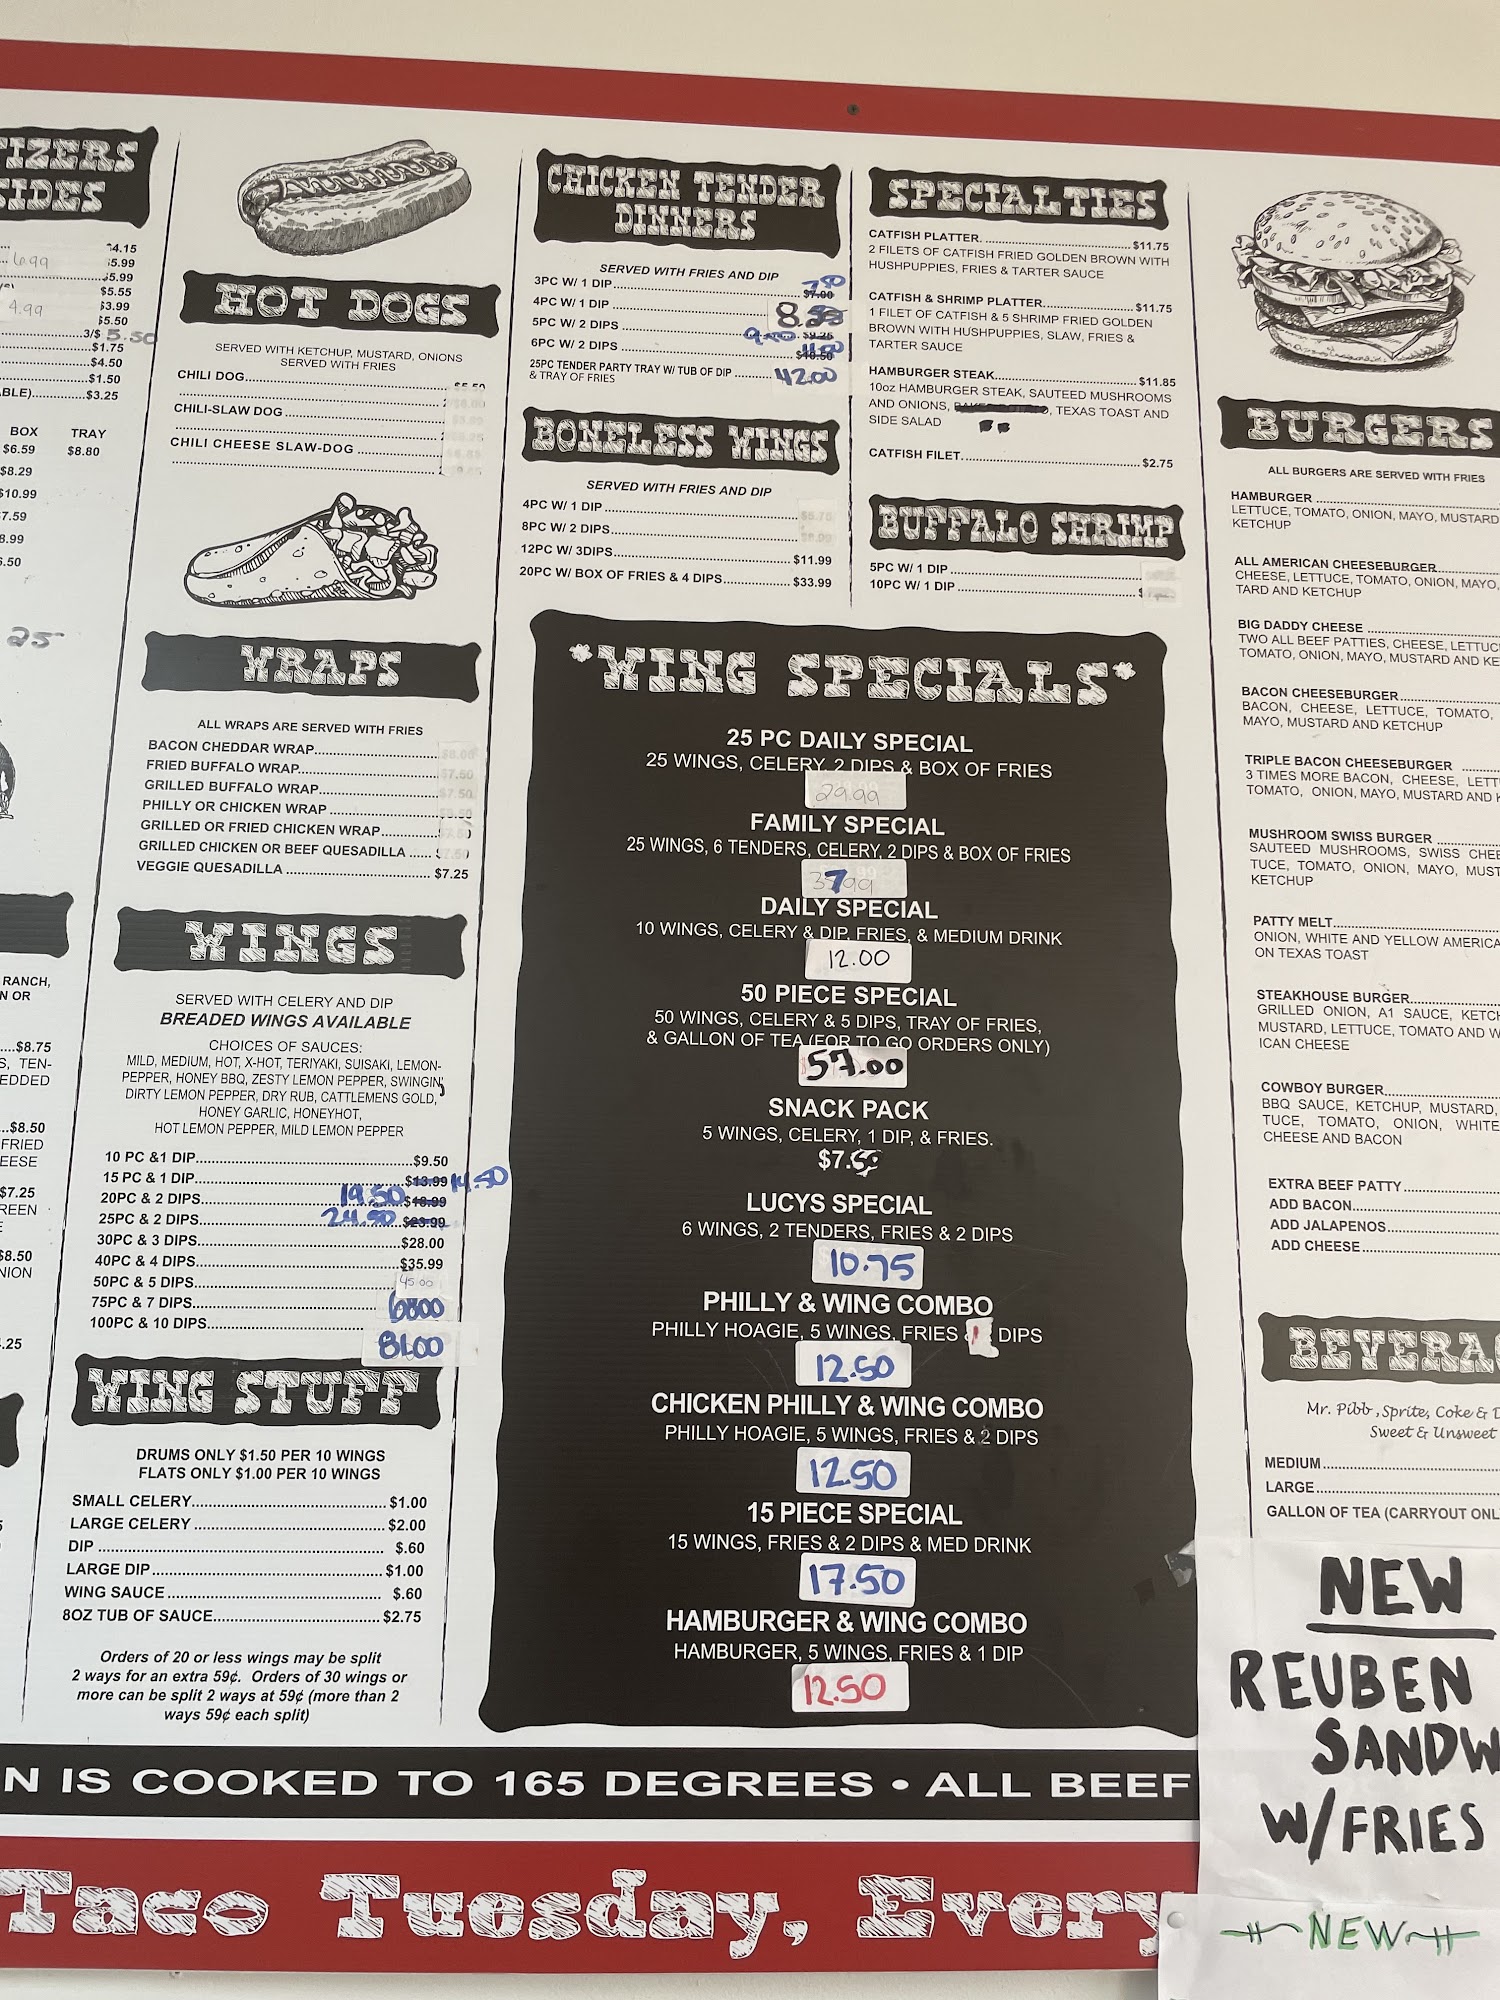 TIZERS
SIDES
$4.15
6.99 $5.99
$5.99
$5.55
4.99 $3.99
$5.50
3/$ 5.50
$1.75
$4.50
$1.50
ABLE) $3.25
BOX TRAY
$6.59 $8.80
$8.29
$10.99
7.59
8.99
25
RANCH,
N OR
$8.75
S, TEN-
EDDED
$8.50
FRIED
EESE
$7.25
REEN
$8.50
NION
.25
HOT DOGS
SERVED WITH KETCHUP, MUSTARD, ONIONS
SERVED WITH FRIES
CHILI DOG
CHILI-SLAW DOG
CHILI CHEESE SLAW-DOG
WRAPS
ALL WRAPS ARE SERVED WITH FRIES
BACON CHEDDAR WRAP $8.00
FRIED BUFFALO WRAP $7.50
GRILLED BUFFALO WRAP $7.50
PHILLY OR CHICKEN WRAP
GRILLED OR FRIED CHICKEN WRAP
GRILLED CHICKEN OR BEEF QUESADILLA $7.50
VEGGIE QUESADILLA $7.25
WINGS
SERVED WITH CELERY AND DIP
BREADED WINGS AVAILABLE
CHOICES OF SAUCES:
MILD, MEDIUM, HOT, X-HOT, TERIYAKI, SUISAKI, LEMON-
PEPPER, HONEY BBQ, ZESTY LEMON PEPPER, SWINGIN,
DIRTY LEMON PEPPER, DRY RUB, CATTLEMENS GOLD,
HONEY GARLIC, HONEYHOT,
HOT LEMON PEPPER, MILD LEMON PEPPER
10 PC &1 DIP $9.50
15 PC & 1 DIP $13.99 14.50
20PC & 2 DIPS 19.50 $18.99
25PC & 2 DIPS 24.50 $23.99
30PC & 3 DIPS $28.00
40PC & 4 DIPS $35.99
50PC & 5 DIPS 45.00
75PC & 7 DIPS 6800
100PC & 10 DIPS 81.00
WING STUFF
DRUMS ONLY $1.50 PER 10 WINGS
FLATS ONLY $1.00 PER 10 WINGS
SMALL CELERY $1.00
LARGE CELERY $2.00
DIP $.60
LARGE DIP $1.00
WING SAUCE $.60
8OZ TUB OF SAUCE $2.75
Orders of 20 or less wings may be split
2 ways for an extra 59¢. Orders of 30 wings or
more can be split 2 ways at 59¢ (more than 2
ways 59¢ each split)
CHICKEN TENDER
DINNERS
SERVED WITH FRIES AND DIP
3PC W/ 1 DIP $7.00
4PC W/ 1 DIP
5PC W/ 2 DIPS $9.25
6PC W/ 2 DIPS $10.50
25PC TENDER PARTY TRAY W/ TUB OF DIP 42.00
& TRAY OF FRIES
BONELESS WINGS
SERVED WITH FRIES AND DIP
4PC W/ 1 DIP $5.75
8PC W/ 2 DIPS
12PC W/ 3DIPS $11.99
20PC W/ BOX OF FRIES & 4 DIPS $33.99
SPECIALTIES
CATFISH PLATTER $11.75
2 FILETS OF CATFISH FRIED GOLDEN BROWN WITH
HUSHPUPPIES, FRIES & TARTER SAUCE
CATFISH & SHRIMP PLATTER $11.75
1 FILET OF CATFISH & 5 SHRIMP FRIED GOLDEN
BROWN WITH HUSHPUPPIES, SLAW, FRIES &
TARTER SAUCE
HAMBURGER STEAK $11.85
10oz HAMBURGER STEAK, SAUTEED MUSHROOMS
AND ONIONS, , TEXAS TOAST AND
SIDE SALAD
CATFISH FILET $2.75
BUFFALO SHRIMP
5PC W/ 1 DIP
10PC W/ 1 DIP
*WING SPECIALS*
25 PC DAILY SPECIAL
25 WINGS, CELERY, 2 DIPS & BOX OF FRIES
29.99
FAMILY SPECIAL
25 WINGS, 6 TENDERS, CELERY, 2 DIPS & BOX OF FRIES
37.99
DAILY SPECIAL
10 WINGS, CELERY & DIP, FRIES, & MEDIUM DRINK
12.00
50 PIECE SPECIAL
50 WINGS, CELERY & 5 DIPS, TRAY OF FRIES,
& GALLON OF TEA (FOR TO GO ORDERS ONLY)
57.00
SNACK PACK
5 WINGS, CELERY, 1 DIP, & FRIES.
$7.50
LUCYS SPECIAL
6 WINGS, 2 TENDERS, FRIES & 2 DIPS
10.75
PHILLY & WING COMBO
PHILLY HOAGIE, 5 WINGS, FRIES & 1 DIPS
12.50
CHICKEN PHILLY & WING COMBO
PHILLY HOAGIE, 5 WINGS, FRIES & 2 DIPS
12.50
15 PIECE SPECIAL
15 WINGS, FRIES & 2 DIPS & MED DRINK
17.50
HAMBURGER & WING COMBO
HAMBURGER, 5 WINGS, FRIES & 1 DIP
12.50
BURGERS
ALL BURGERS ARE SERVED WITH FRIES
HAMBURGER
LETTUCE, TOMATO, ONION, MAYO, MUSTARD
KETCHUP
ALL AMERICAN CHEESEBURGER
CHEESE, LETTUCE, TOMATO, ONION, MAYO,
TARD AND KETCHUP
BIG DADDY CHEESE
TWO ALL BEEF PATTIES, CHEESE, LETTUC
TOMATO, ONION, MAYO, MUSTARD AND KE
BACON CHEESEBURGER
BACON, CHEESE, LETTUCE, TOMATO,
MAYO, MUSTARD AND KETCHUP
TRIPLE BACON CHEESEBURGER
3 TIMES MORE BACON, CHEESE, LETT
TOMATO, ONION, MAYO, MUSTARD AND K
MUSHROOM SWISS BURGER
SAUTEED MUSHROOMS, SWISS CHEE
TUCE, TOMATO, ONION, MAYO, MUST
KETCHUP
PATTY MELT
ONION, WHITE AND YELLOW AMERICA
ON TEXAS TOAST
STEAKHOUSE BURGER
GRILLED ONION, A1 SAUCE, KETCH
MUSTARD, LETTUCE, TOMATO AND W
ICAN CHEESE
COWBOY BURGER
BBQ SAUCE, KETCHUP, MUSTARD,
TUCE, TOMATO, ONION, WHITE
CHEESE AND BACON
EXTRA BEEF PATTY
ADD BACON
ADD JALAPENOS
ADD CHEESE
BEVERAG
Mr. Pibb, Sprite, Coke & D
Sweet & Unsweet
MEDIUM
LARGE
GALLON OF TEA (CARRYOUT ONL
NEW
REUBEN
SANDW
W/FRIES
NEW
N IS COOKED TO 165 DEGREES • ALL BEEF
Taco Tuesday, Every